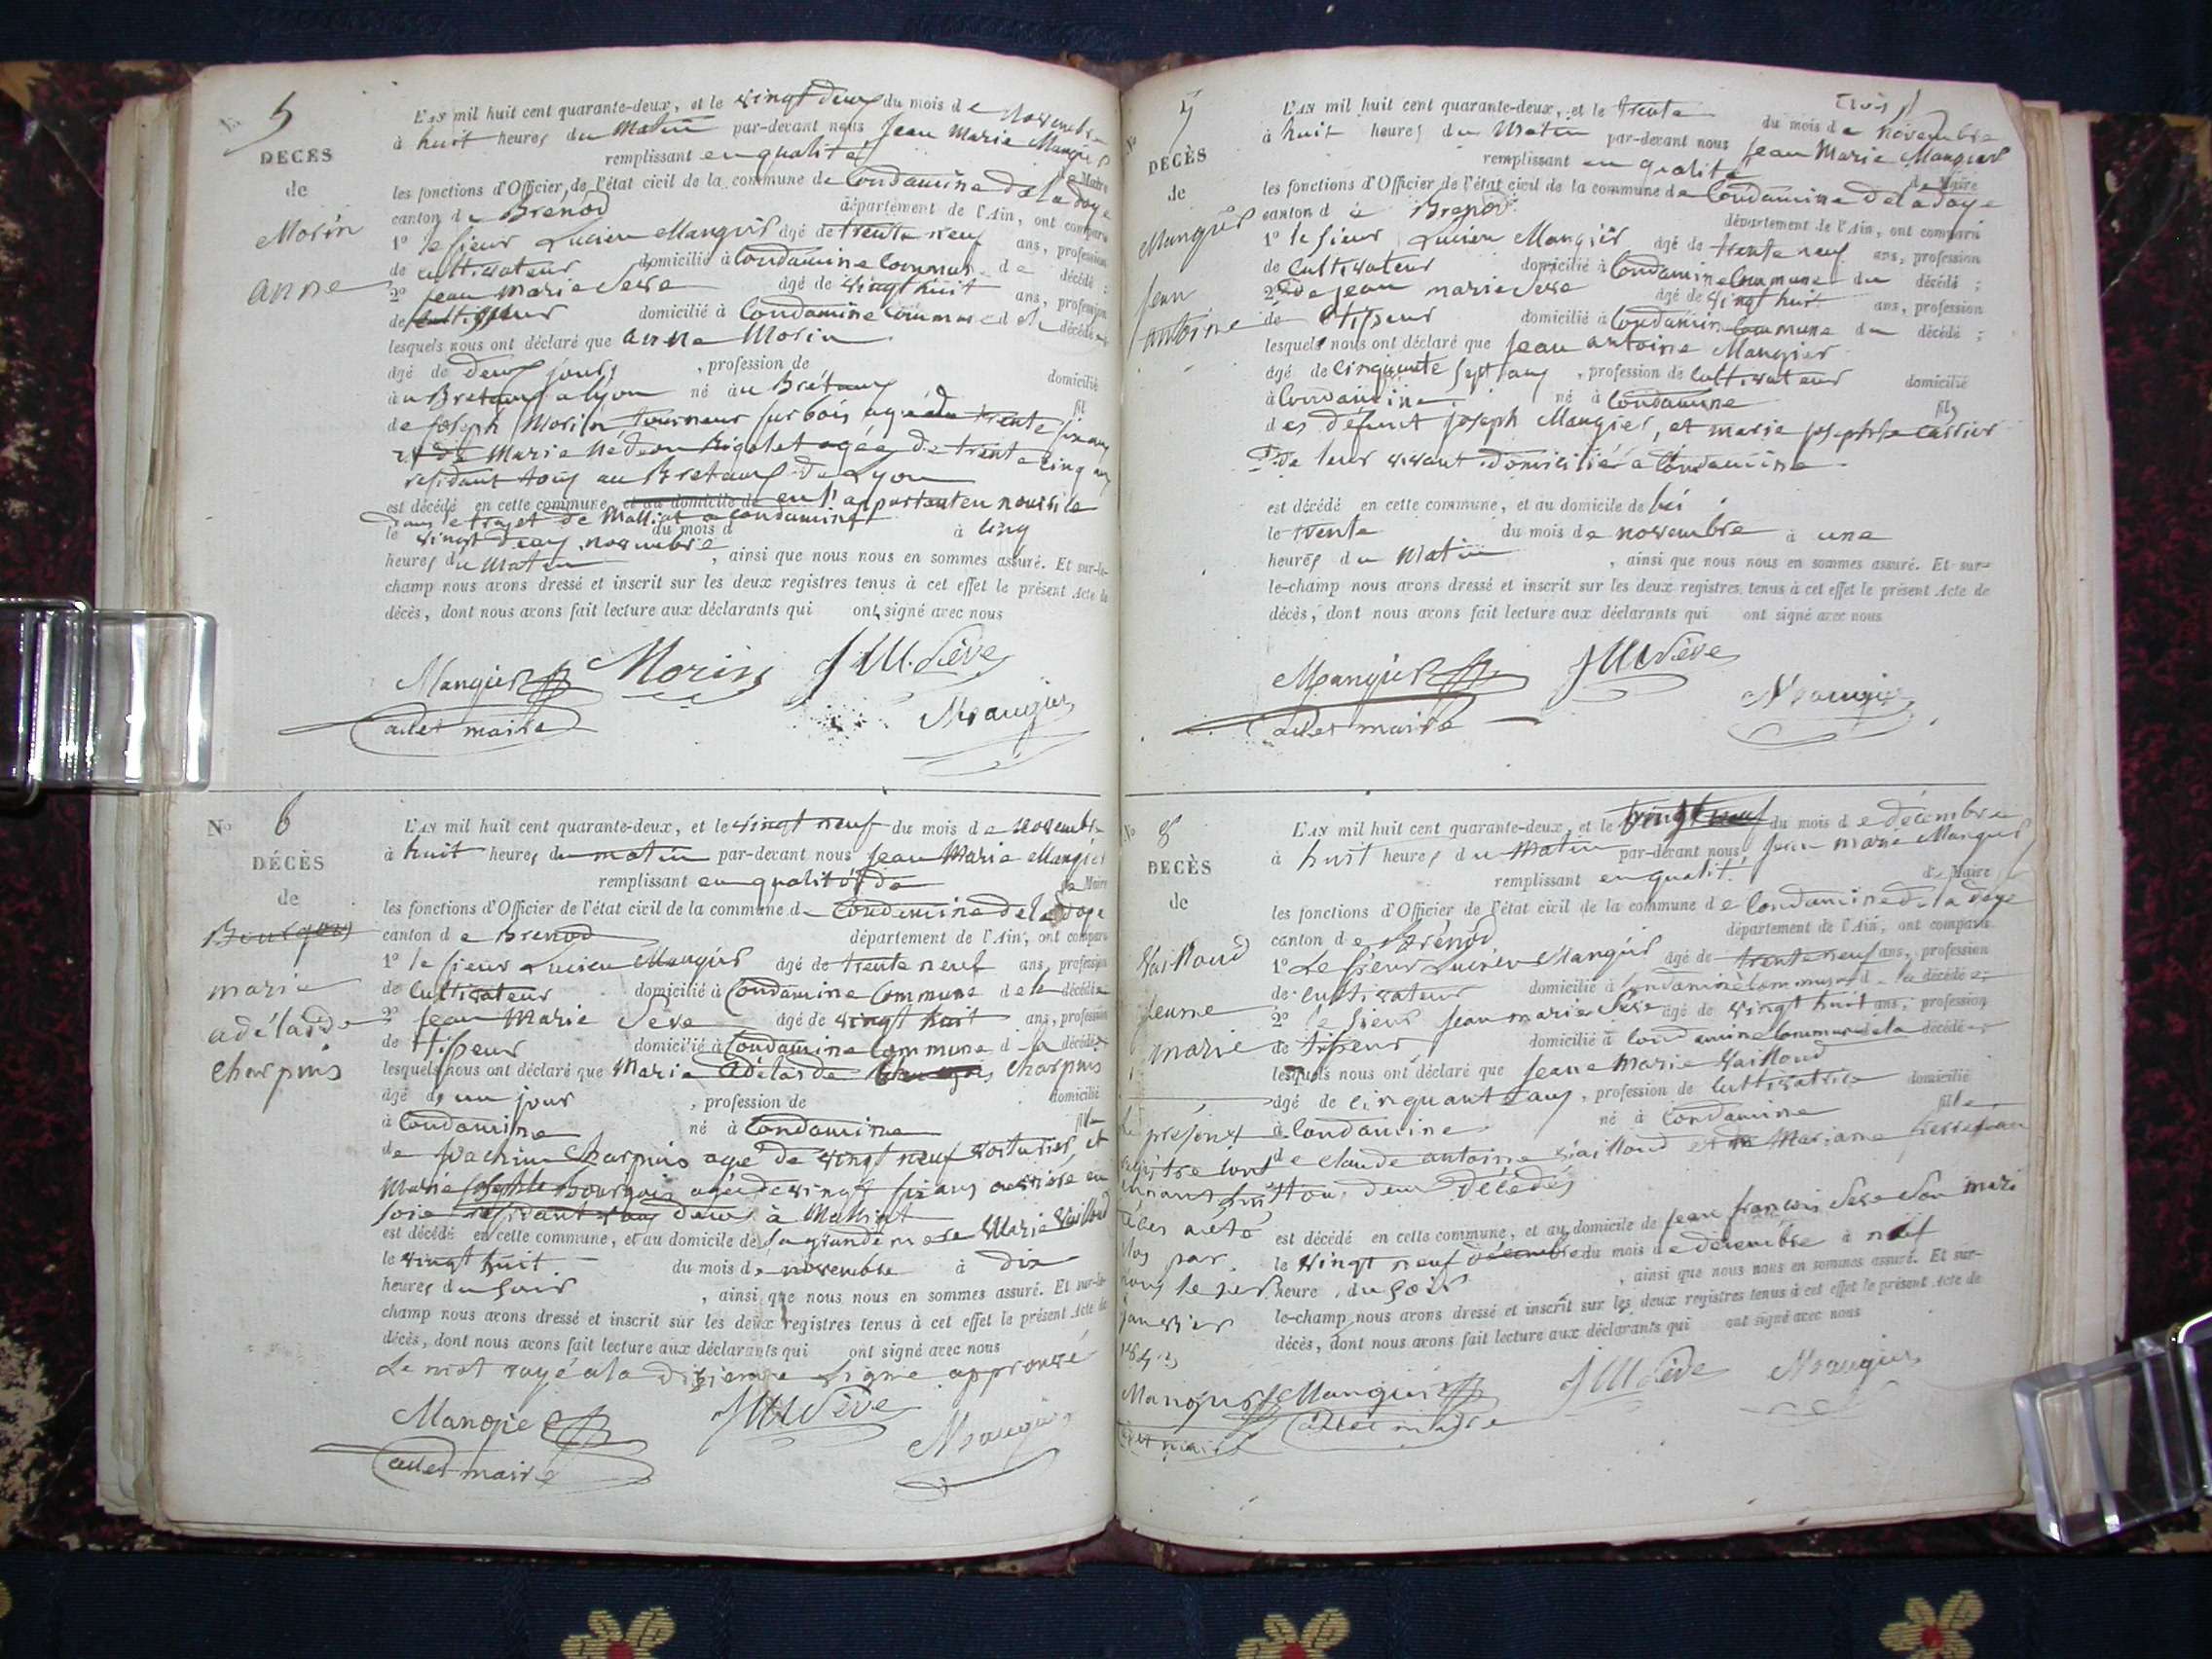 5
DÉCÈS
de
Morin
anne
L'AN mil huit cent quarante-deux, et le vingt deux du mois de novembre
à huit heures du matin par-devant nous Jean Marie Mangier
remplissant en qualité de Maire
les fonctions d'Officier de l'état civil de la commune de Condamine de la doye
canton de Brénod département de l'Ain, ont comparu
1º le sieur Lucien Mangier âgé de trente neuf ans, profession
de cultivateur domicilié à Condamine Commune de décédé ;
2º Jean marie Seve âgé de vingt huit ans, profession
de domicilié à Condamine Commune de la décédée
lesquels nous ont déclaré que anne Morin
âgé de deux jours , profession de domicilié
à né au
de Joseph Morin, tourneur sur bois agé de trente six ans
et de Marie agée de trente cinq ans
residant tous au de Lyon
est décédé en cette commune, et au domicile de en l'apportant en nourrice
dans le trajet de Malliat a Condamine
le vingt deux novembre du mois d à cinq
heures du Matin , ainsi que nous nous en sommes assuré. Et sur-le-
champ nous avons dressé et inscrit sur les deux registres tenus à cet effet le présent Acte de
décès, dont nous avons fait lecture aux déclarants qui ont signé avec nous
Mangier Morin J M Sève
adet maire Mangier
Nº 6
DÉCÈS
de
Bourgeois
marie
adélaide
Charpuis
L'AN mil huit cent quarante-deux, et le vingt neuf du mois de novembre
à huit heures du matin par-devant nous Jean Marie Mangier
remplissant en qualité de de Maire
les fonctions d'Officier de l'état civil de la commune de Condamine de la doye
canton de Brenod département de l'Ain, ont comparu
1º le sieur Lucien Mangier âgé de trente neuf ans, profession
de cultivateur domicilié à Condamine Commune de la décédée
2º Jean Marie Seve âgé de vingt huit ans, profession
de tisseur domicilié à Condamine Commune d la décédée
lesquels nous ont déclaré que Marie Adélaide Charpuis
âgé d'un jour , profession de domicilié
à Condamine né à Condamine fille
de Joachim Charpuis agé de vingt neuf voiturier, et
Marie Josephte Bourgeois agée de vingt six ans ouvrière en
soie residant tous deux à Malliat
est décédé en cette commune, et au domicile de sa grande mere Marie Vailloud
le vingt huit du mois de novembre à dix
heures du soir , ainsi que nous nous en sommes assuré. Et sur-le-
champ nous avons dressé et inscrit sur les deux registres tenus à cet effet le présent Acte de
décès, dont nous avons fait lecture aux déclarants qui ont signé avec nous
Le mot rayé a la dixieme Ligne approuvé
Mangier J M Sève
adet maire Mangier
trois
Nº 7
DÉCÈS
de
Mangier
Jean
antoine
L'AN mil huit cent quarante-deux, et le trente du mois de novembre
à huit heures du Matin par-devant nous Jean Marie Mangier
remplissant en qualité de Maire
les fonctions d'Officier de l'état civil de la commune de Condamine de la doye
canton d e Brenod département de l'Ain, ont comparu
1º le sieur Lucien Mangier âgé de trente neuf ans, profession
de Cultivateur domicilié à Condamine Commune du décédé ;
2º de Jean marie Seve âgé de vingt huit ans, profession
de tisseur domicilié à Condamine Commune du décédé ;
lesquels nous ont déclaré que Jean antoine Mangier
âgé de cinquante sept ans , profession de Cultivateur domicilié
à Condamine né à Condamine fils
des défunt Joseph Mangier, et marie Josephte
de leur vivant domicilié à Condamine
est décédé en cette commune, et au domicile de lui
le trente du mois de novembre à une
heures du Matin , ainsi que nous nous en sommes assuré. Et sur-
le-champ nous avons dressé et inscrit sur les deux registres tenus à cet effet le présent Acte de
décès, dont nous avons fait lecture aux déclarants qui ont signé avec nous
Mangier J M Sève
adet maire Mangier
Nº 8
DÉCÈS
de
Vailloud
Jeanne
marie
L'AN mil huit cent quarante-deux, et le vingt neuf du mois de décembre
à huit heures du Matin par-devant nous Jean marie Mangier
remplissant en qualité de Maire
les fonctions d'Officier de l'état civil de la commune de Condamine de la doye
canton de Brénod département de l'Ain, ont comparu
1º Le sieur Lucien Mangier âgé de trente neuf ans, profession
de cultivateur domicilié à Condamine Commune d la décédée ;
2º le sieur Jean marie Seve âgé de vingt huit ans, profession
de tisseur domicilié à Condamine Commune de la décédée
lesquels nous ont déclaré que Jeane Marie Vailloud
âgé de cinquante ans, profession de cultivatrice domicilié
à Condamine né à Condamine fille
de Claude antoine Vailloud et de Mariane
tous deux Décédés
est décédé en cette commune, et au domicile de Jean françois Seve son mari
le vingt neuf décembre du mois de décembre à neuf
heure du soir , ainsi que nous nous en sommes assuré. Et sur-
le-champ nous avons dressé et inscrit sur les deux registres tenus à cet effet le présent Acte de
décès, dont nous avons fait lecture aux déclarants qui ont signé avec nous
Le présent
registre cont
enant huit
décès a été
clos par
nous le 1er
janvier
1843
Mangier
adet maire
Mangier J M Sève Mangier
adet maire